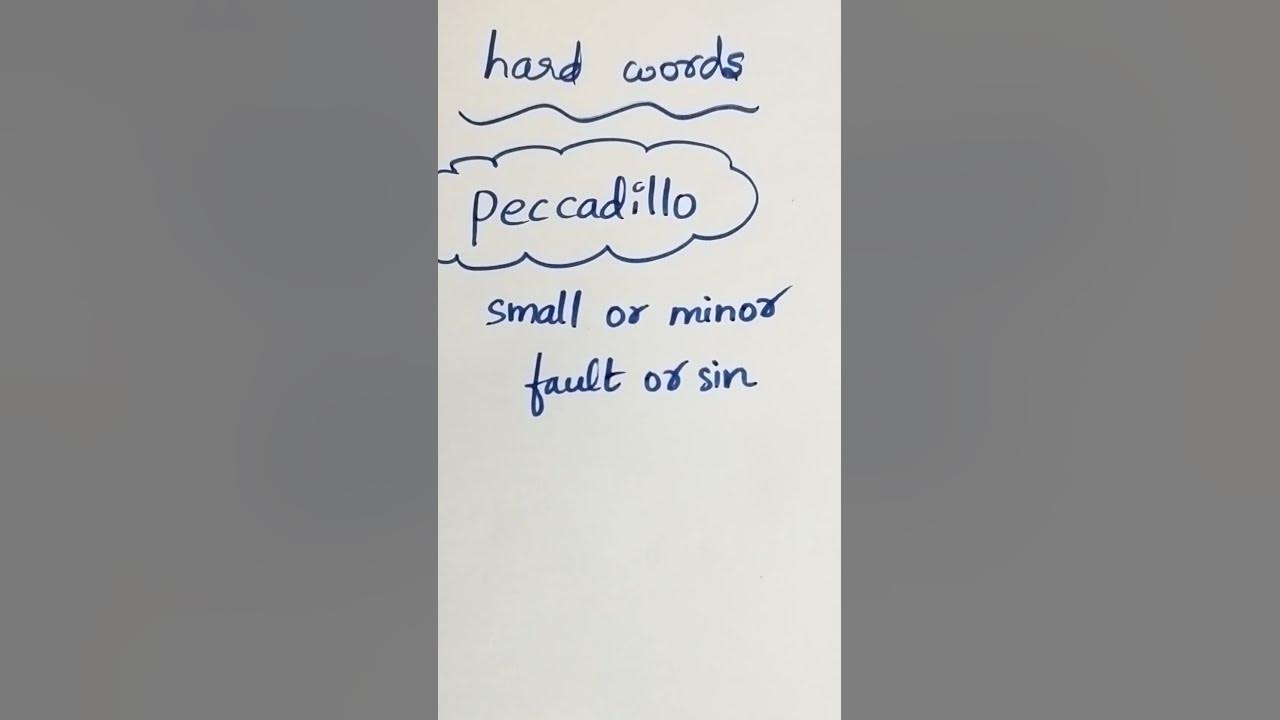 hard words
peccadillo
small or minor
fault or sin